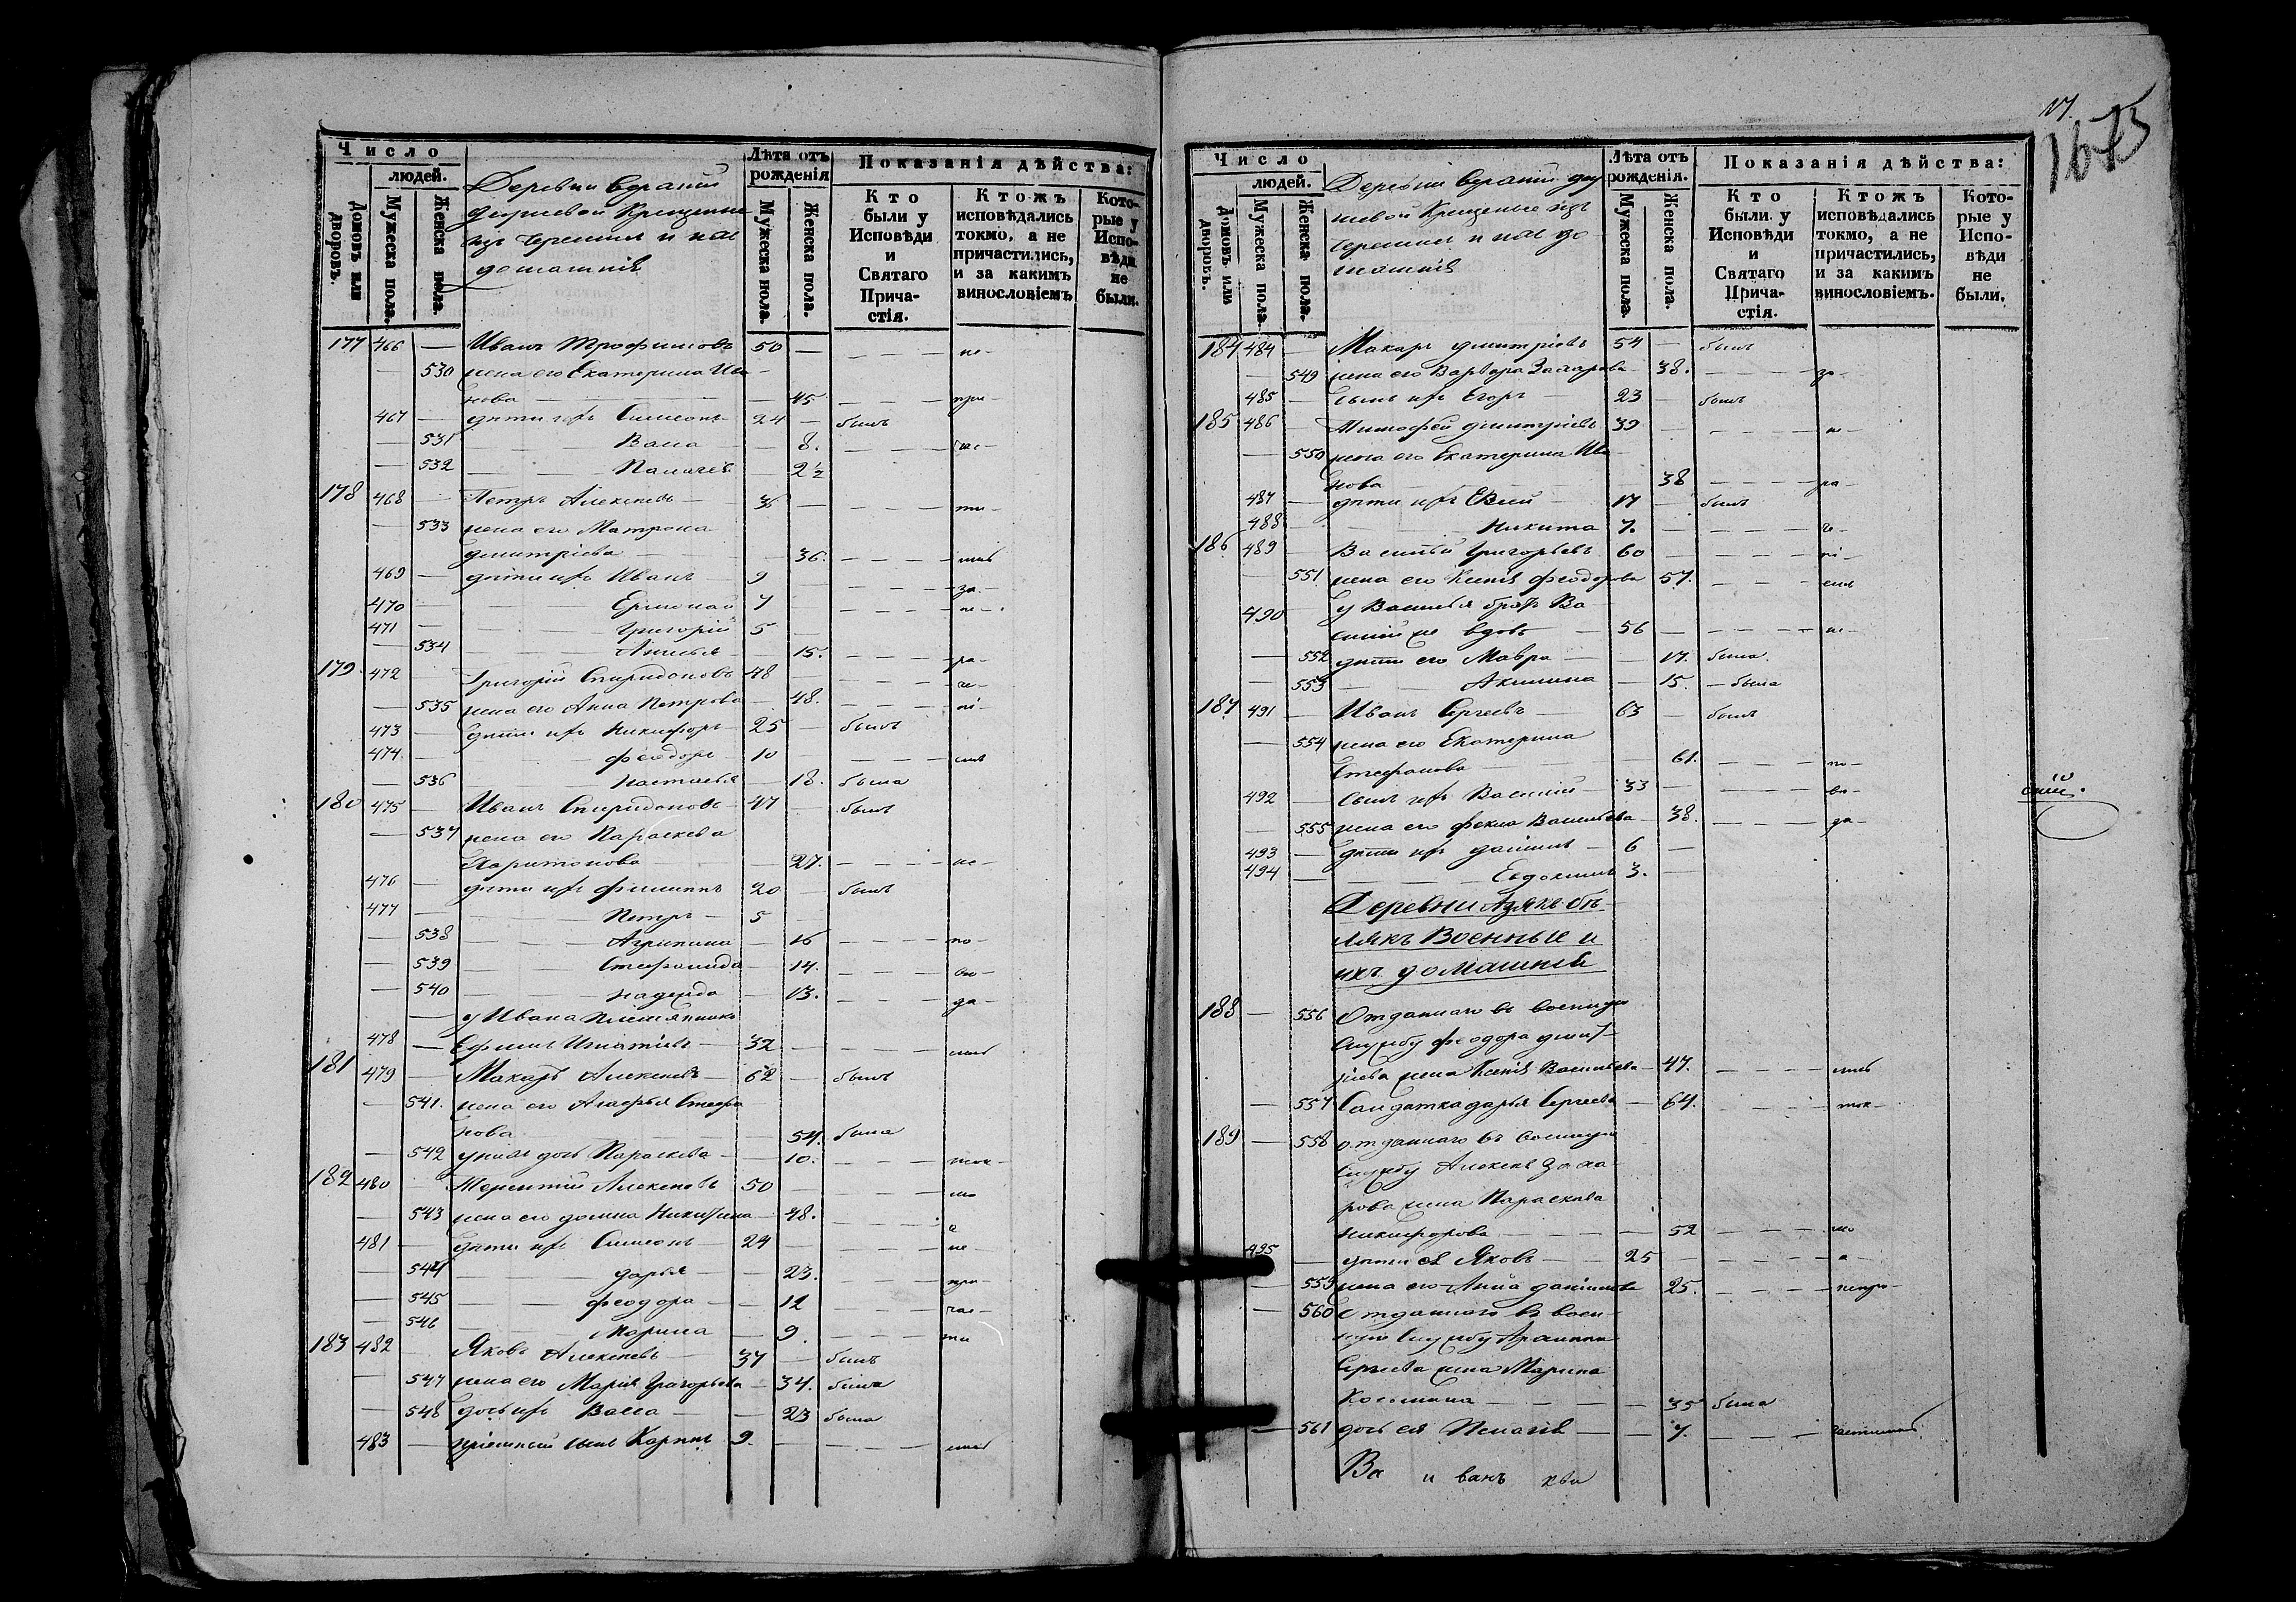 Число
людей.
Домовъ или дворовъ.
Мужеска пола.
Женска пола.
Деревни
Крещеные
изъ Черемисъ и ихъ
домашнiе
Лѣта отъ рожденія
Мужеска пола.
Женска пола.
Показанія дѣйства:
Кто были у Исповѣди и Святаго Причастія.
Ктожъ исповѣдались токмо, а не причастились, и за какимъ винословіемъ
Которые у Исповѣди не были.
177 466 — Иванъ Трофимовъ 50 — не-
— 530 жена его Екатерина Ива-
нова — 45 — при-
467 — дѣти ихъ Симеонъ 24 — былъ
— 531 Васса — 8. час-
— 532 Палагея 2½
178 468 — Петръ Алексеевъ — 36 — ти-
— 533 жена его Матрона
Дмитріева — 36. — лись
469 — дѣти ихъ Иванъ 9 — за-
470 — Ермолай 7 — не-
471 — Григорій 5 —
— 534 — 15. — ра-
179. 472 — Григорій Спиридоновъ 48 — че-
— 535 жена его Анна Петрова — 48. — ні-
473 — дѣти ихъ Никифоръ 25 — былъ
474 — Феодоръ 10 — емъ
— 536 Настасья — 18. была
180 475 — Иванъ Спиридоновъ 47 — былъ
— 537 жена его Параскева
Харитонова — 27. — не-
476 — дѣти ихъ Филиппъ 20 — былъ
477 — Петръ — 5
— 538 Агрипина — 16 — по-
— 539 Стефанида — 14. — во-
— 540 Надежда — 13. — да-
— у Ивана племянникъ
478 — Ефимъ Игнатіевъ — 32 —
181 479 — Макаръ Алексеевъ — 62 — былъ
— 541. жена его Агафья Стефа-
нова — 54. была
— 542 у нихъ дочь Параскева — 10. — ток-
182 480 — Терентій Алексеевъ 50 — мо
— 543 жена его Домна Никитина — 48. — а
481 — дѣти ихъ Симеонъ — 24 — не-
— 544 Дарья — 23. — при-
— 545 Феодора — 12 — час-
— 546 Марина — 9. — ти
183 482 — Яковъ Алексеевъ — 37 — былъ
— 547 жена его Марія Григорьева — 34. была
— 548 дочь ихъ Васса — 23 была
483 — пріемный сынъ Карпъ 9. — лись
17.
1673
Число
людей.
Домовъ или дворовъ.
Мужеска пола.
Женска пола.
Деревни
Крещеные изъ
Черемисъ и ихъ до-
машнiе
Лѣта отъ рожденія.
Мужеска пола.
Женска пола.
Показанія дѣйства:
Кто были у Исповѣди и Святаго Причастія.
Ктожъ исповѣдались токмо, а не причастились, и за какимъ винословіемъ.
Которые у Исповѣди не были.
184 484 — Макаръ Дмитріевъ 54 — былъ
— 549 жена его Варвара Захарова — 38. — за-
485 — сынъ ихъ Егоръ — 23 — былъ
185 486 — Тимофей Дмитріевъ 39 — не-
— 550 жена его Екатерина Ива-
нова — 38 — ра-
487 — дѣти ихъ — 17 — былъ
488 — Никита 7. — че-
186. 489 — Василій Григорьевъ 60 — ні-
— 551 жена его Ксенія Феодорова — 57. — емъ
490 у Василья братъ Ва-
силій же вдовъ — 56 — не-
— 552 дѣти его Мавра — 17. была.
— 553 Акилина — 15. — была
187. 491 — Иванъ Сергеевъ — 63 — былъ
— 554 жена его Екатерина
Стефанова — 61. — по-
492 — сынъ ихъ Василій — 33 — во-
— 555 жена его Фекла Васильева — 38. — да-
493 — дѣти ихъ Даніилъ — 6 —
494 — Евдокимъ 3. —
Деревни Азякъ бѣ-
лякъ Военные и
ихъ домашніе
188 — 556 Отданнаго въ военную
службу Феодора Дмит-
ріева жена Ксенія Васильева — 47. —
— 557 Солдатка Дарья Сергеева — 64. — ток-
189 — 558 отданнаго въ военную
службу Алексея Заха-
рова жена Параскева
Никифорова — 52 — мо
495 — дѣти ея Яковъ — 25 — а-
— 559 жена его Анна Даніилова 25. — непри-
— 560 Отданнаго въ воен-
ную службу
Сергеева жена Марина
Косьмина — 35 была
— 561 дочь ея Пелагія — 7. — частились
Ва и ванъ